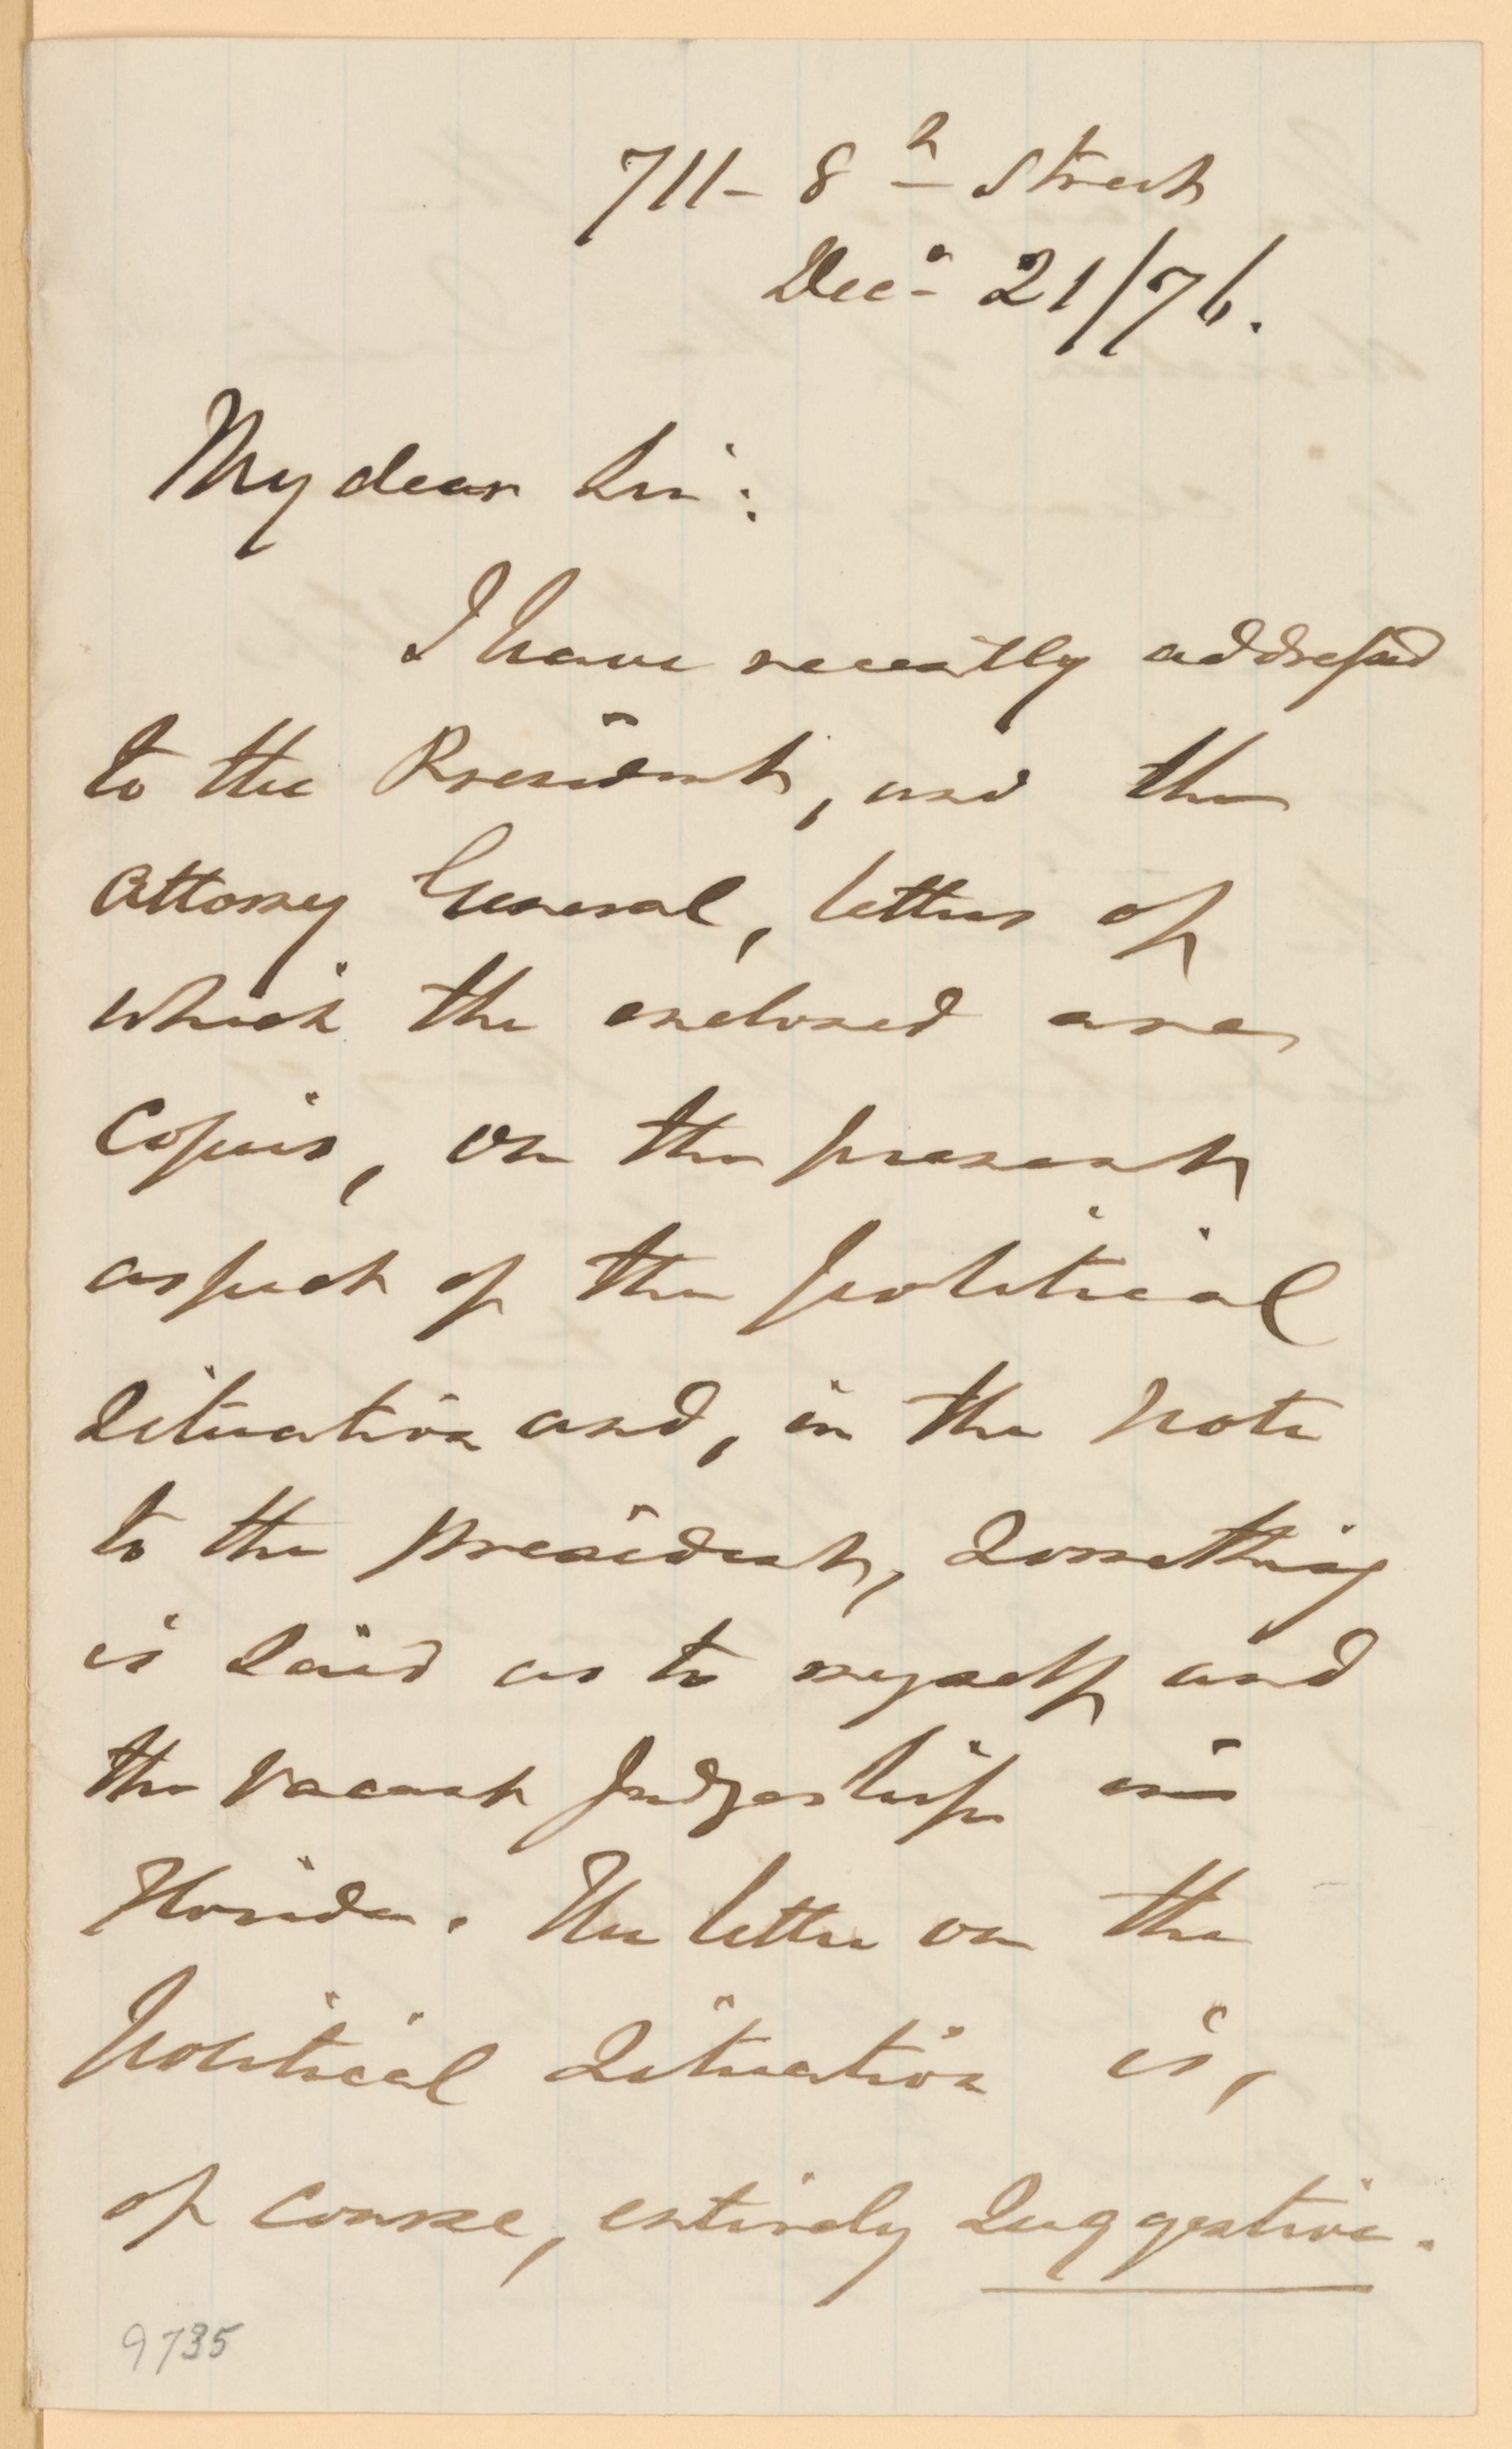 711- 8h Street
Dec. 21/76.
My dear Sir:
I have recently addressed
to the President, and the
Attorney General, letters of
which the enclosed are
Copies, on the present
aspect of the political
Situation and, in the note
to the President, Something
is Said as to myself and
the vacant Judgeship in
Florida. The letter on the
political Situation is,
of course, entirely Suggestive.
9735